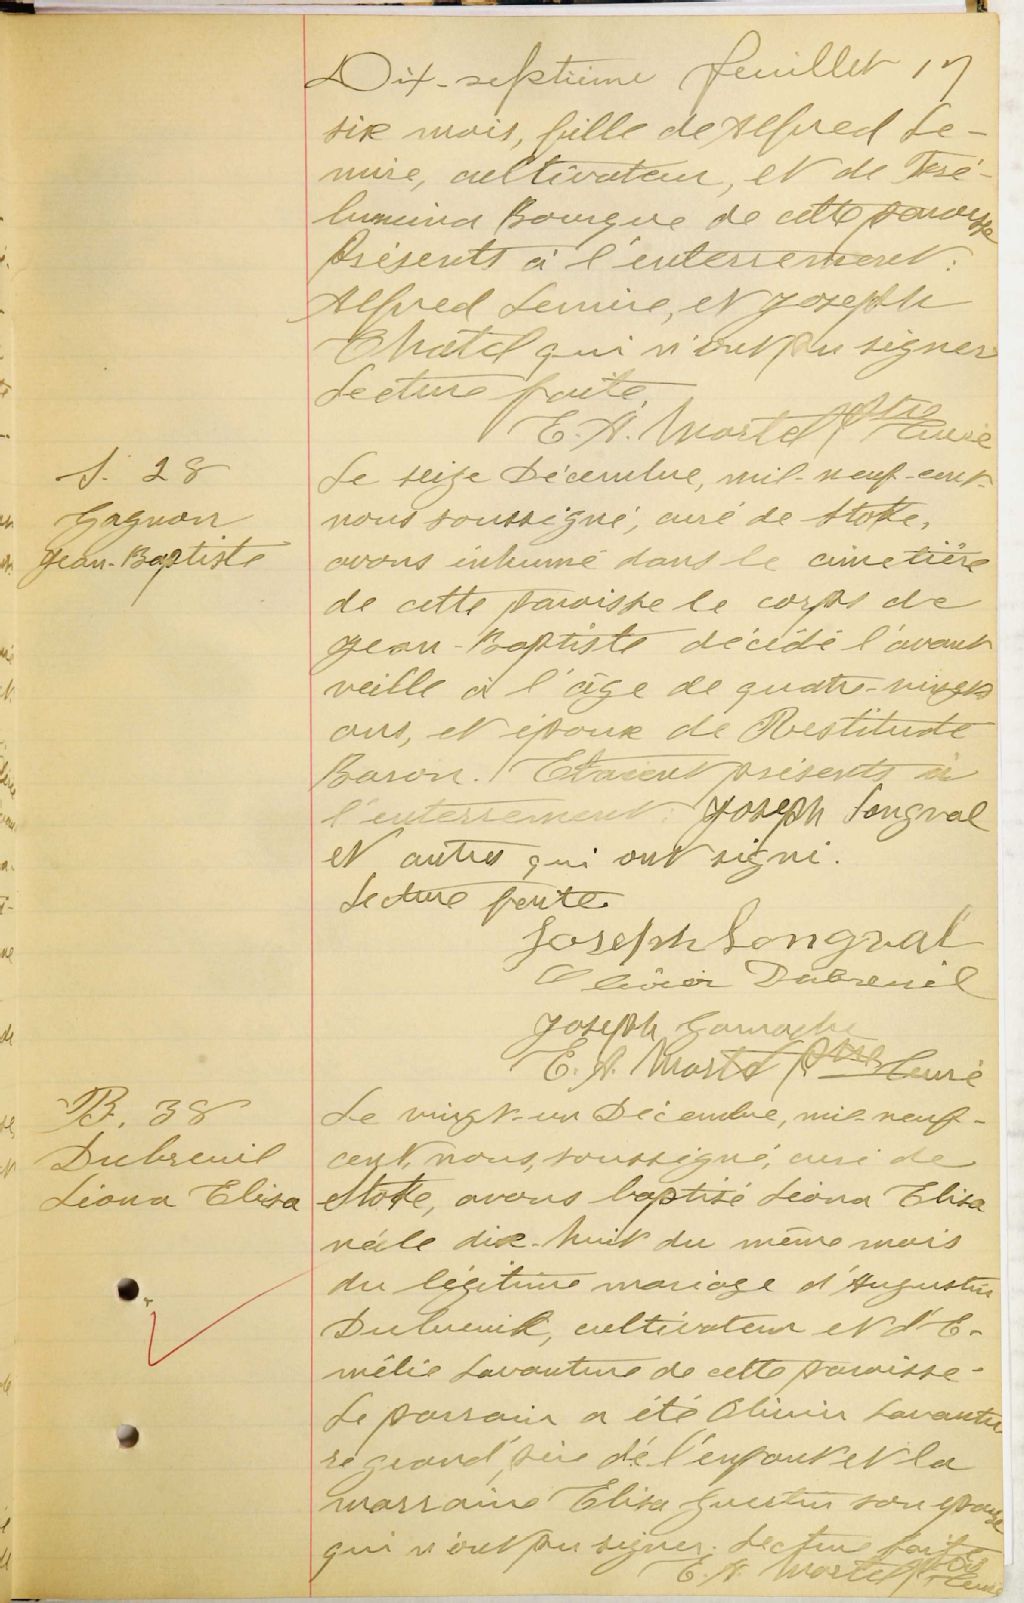 Dix-septième feuillet 17
six mois, fille de Alfred Le-
mire, cultivateur, et de
Bourque de cette paroisse
Présents à l'enterrement:
Alfred Lemire, et Joseph
Chatel qui n'ont pu signer
Lecture faite.
E. A. Martel ptre Curé
S. 28
Gagnon
Jean-Baptiste
Le seize Décembre, mil-neuf-cent
nous soussigné, curé de Stoke,
avons inhumé dans le cimetière
de cette paroisse le corps de
Jean-Baptiste décédé l'avant
veille à l'âge de quatre-vingts
ans, et époux de Restitude
Baron. Etaient présents à
l'enterrement: Joseph Longval
et autres qui ont signé.
Lecture faite
Joseph Longval
Olivier Dubreuil
Joseph Gamache
E. A. Martel ptre Curé
B. 38
Dubreuil
Léona Elisa
Le vingt-un Décembre, mil-neuf-
cent, nous, soussigné, curé de
Stoke, avons baptisé Léona Elisa
née le dix-huit du même mois
du légitime mariage d'Augustin
Dubreuil, cultivateur et d'E-
mélie Lavanture de cette paroisse-
Le parrain a été Olivier Lavantu
re grand'père de l'enfant et la
marraine Elisa son épouse
qui n'ont pu signer. Lecture faite
E. A. Martel ptre Curé